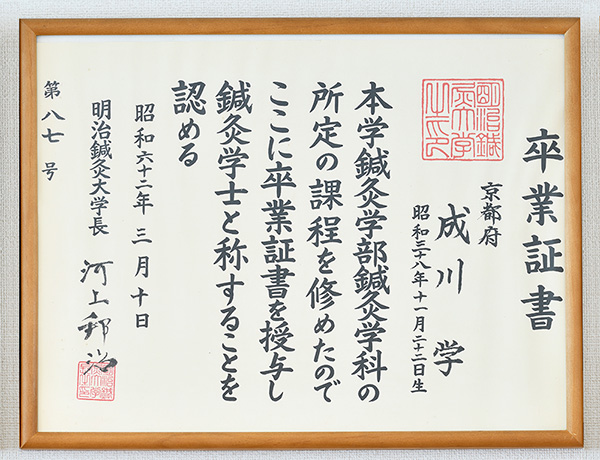 卒業証書
京都府
成川 学
昭和三十八年十一月二十二日生
本学鍼灸学部鍼灸学科の
所定の課程を修めたので
ここに卒業証書を授与し
鍼灸学士と称することを
認める
昭和六十二年 三月十日
明治鍼灸大学長 河上郵治
第八七号